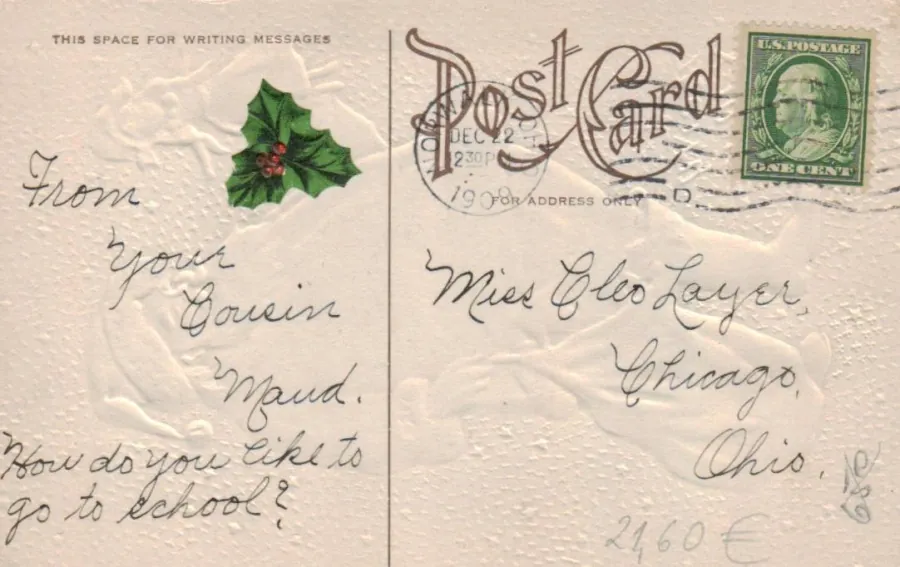 THIS SPACE FOR WRITING MESSAGES
From
Your
Cousin
Maud.
How do you like to
go to school?
Post Card
DEC 22
2 30 P
1909
FOR ADDRESS ONLY
D
U.S. POSTAGE
ONE CENT
Miss Cleo Layer,
Chicago,
Ohio.
21,60 €